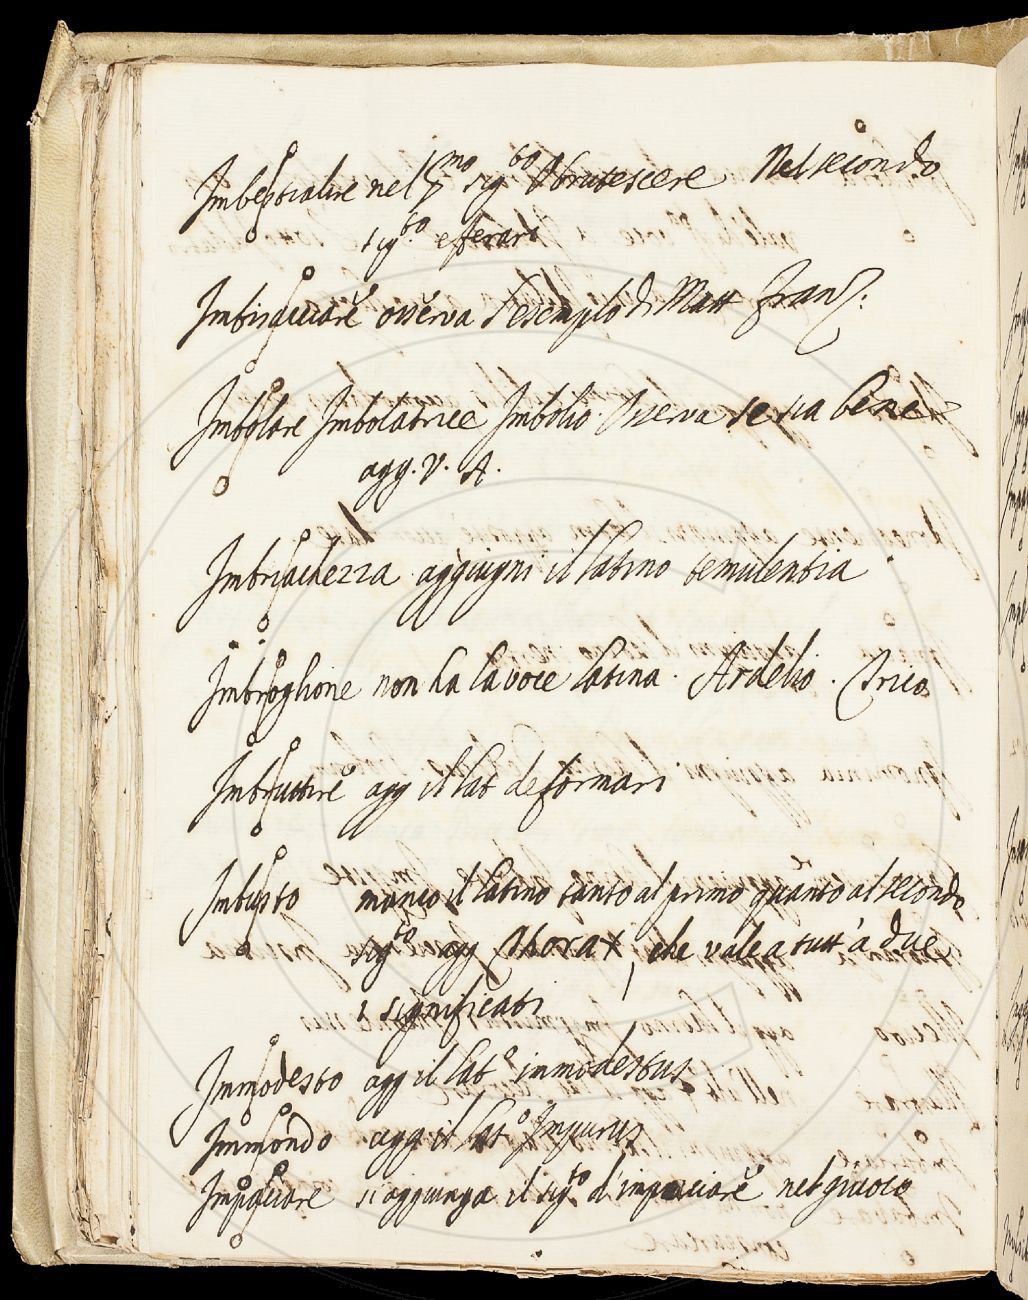 Imbestialire nel p.mo sig.to Obrutescere Nel secondo
sig.to efferari
Imbisacciare osserva l'esemplo di Matt Franz:
Imbolare Imbolatrice Imbolio Osserva se sia bene
agg. V. A.
Imbriachezza aggiugni il latino temulentia
Imbroglione non ha la voce latina. Ardelio. Trico
Imbruttire agg il lat deformari
Imbusto manca il latino tanto al primo quanto al secondo
sig.to agg Thorax, che vale a tutt'a due
i significati
Immodesto agg il lat.o inmodestus
Immondo agg il lat.o Impurus
Impacciare si aggiunga il sig.to d'impacciare nel giuoco